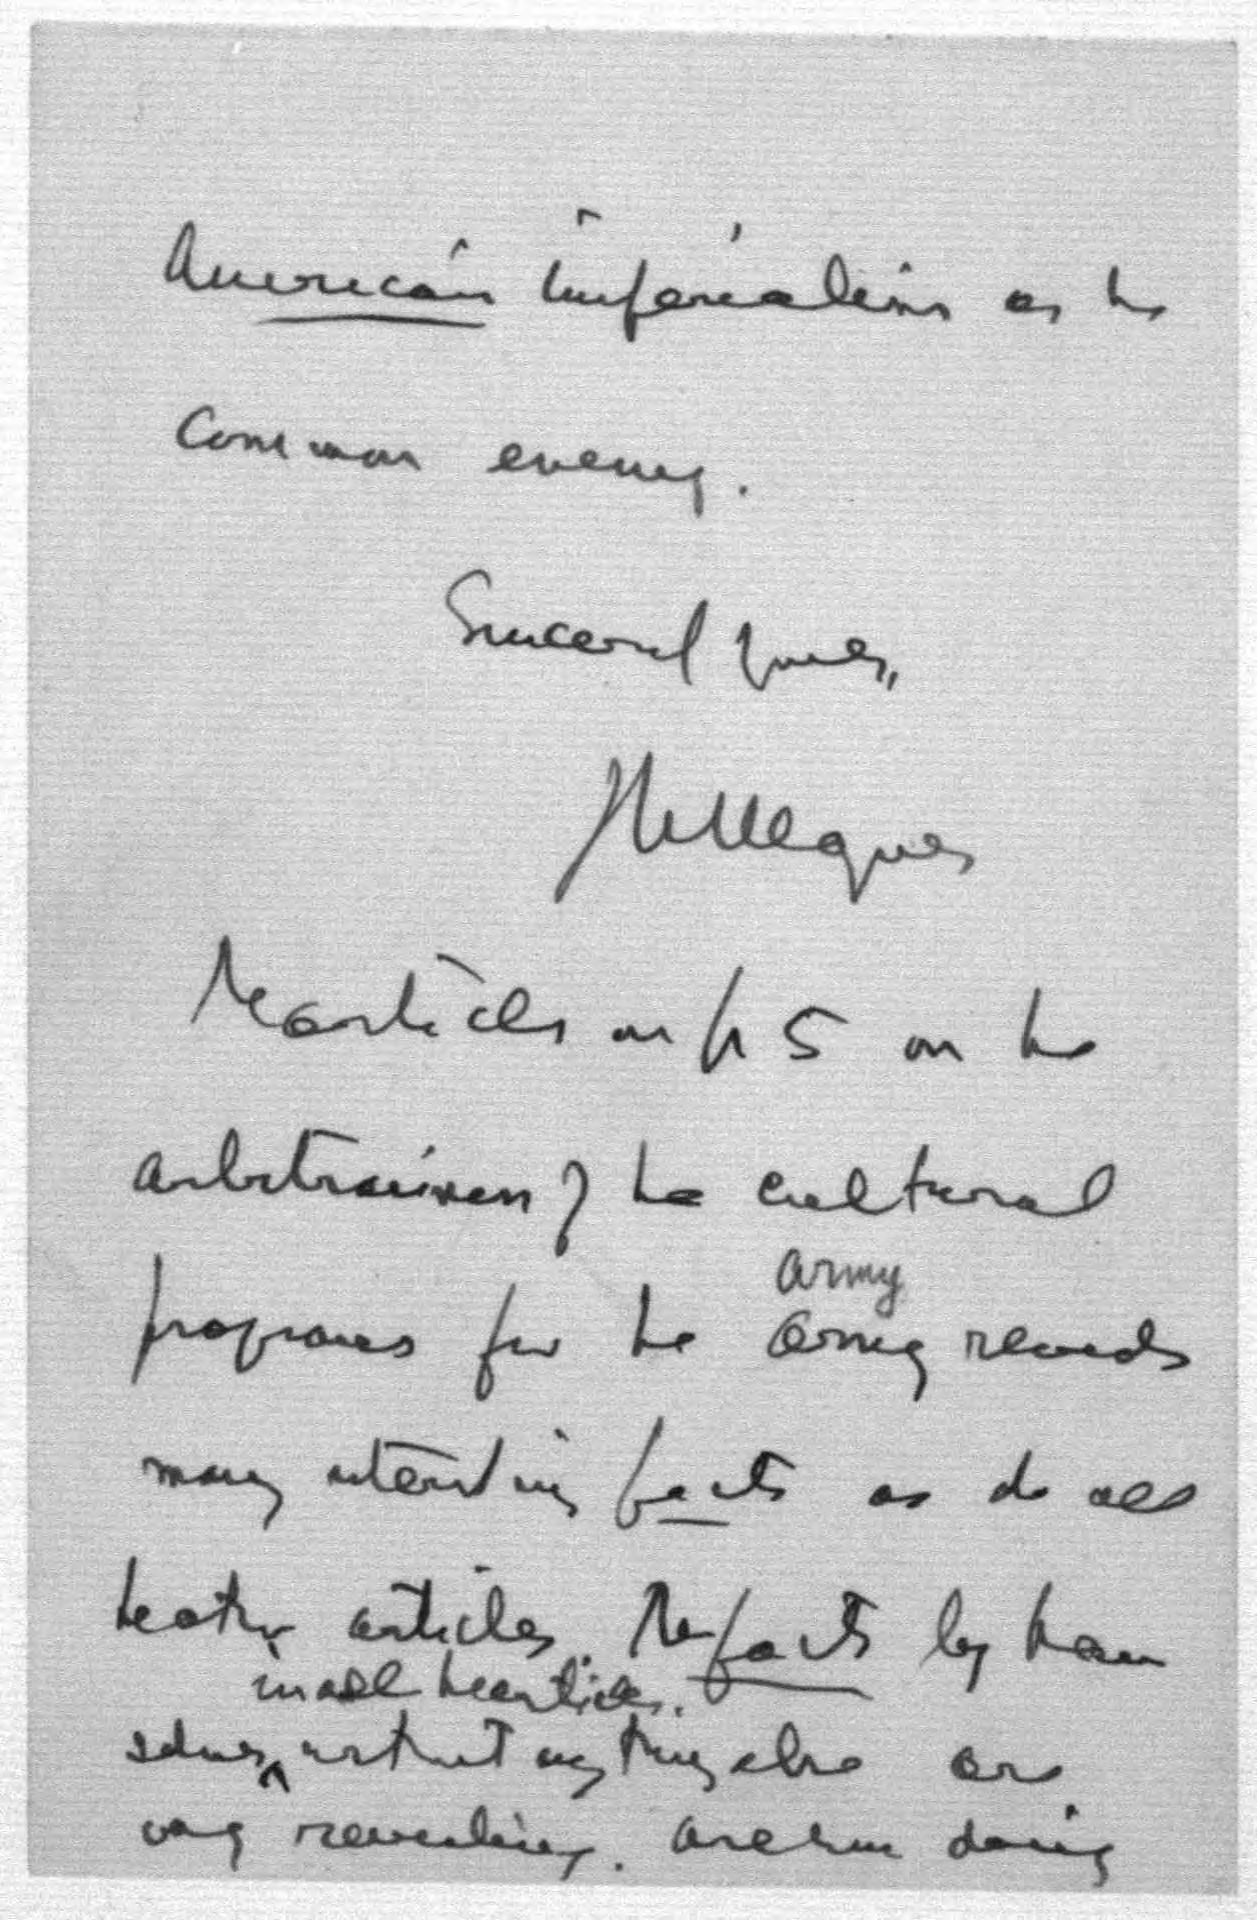 American imperialism as the
common enemy.
Sincerely yours,
The articles on p. 5 on the
of the cultural
programs for the army
Army records
many interesting facts as do all
the other articles. The facts by them
in all the articles.
selves, without anything else are
very revealing. Are doing